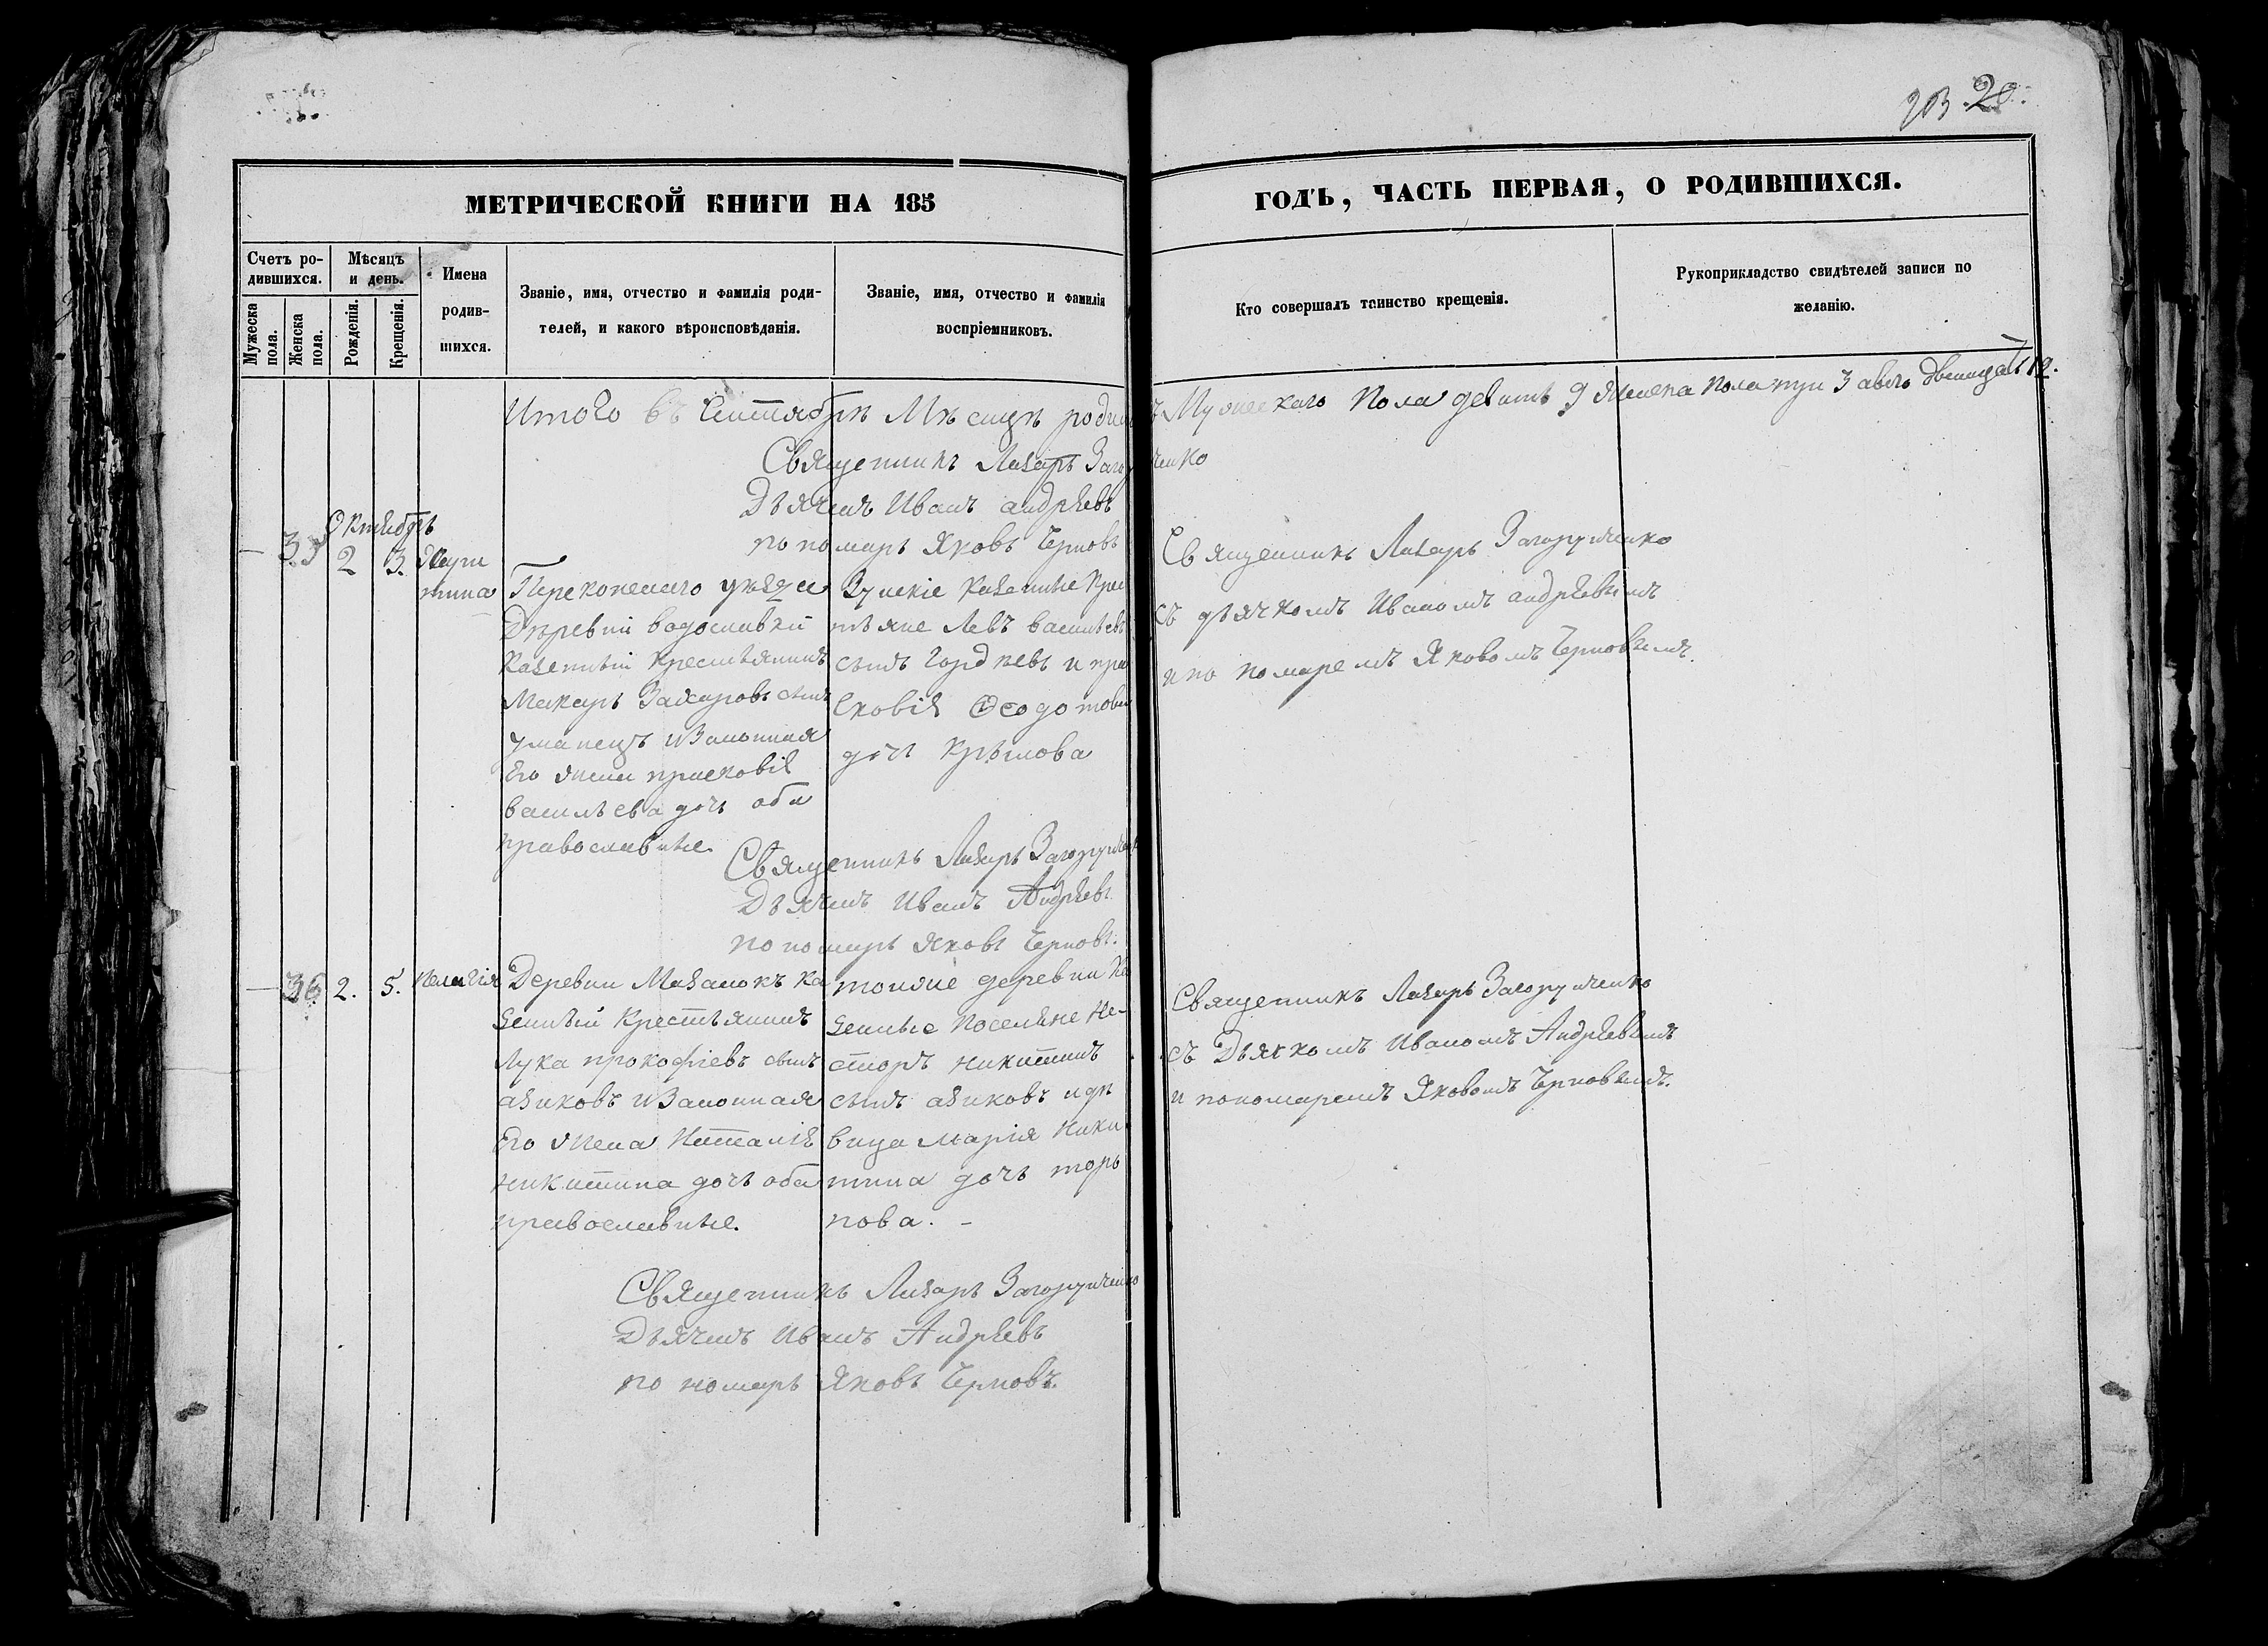 20.
МЕТРИЧЕСКОЙ КНИГИ НА 185
ГОДЪ, ЧАСТЬ ПЕРВАЯ, О РОДИВШИХСЯ.
Счетъ ро-
дившихся.
Мужеска
пола.
Женска
пола.
Мѣсяцъ
и день.
Рожденія.
Крещенія.
Имена
родив-
шихся.
Званіе, имя, отчество и фамилія роди-
телей, и какого вѣроисповѣданія.
Званіе, имя, отчество и фамилія
воспріемниковъ.
Кто совершалъ таинство крещенія.
Рукоприкладство свидѣтелей записи по
желанію.
Итого въ Сентябрѣ Мѣсяцѣ родил
Мужескаго Пола девять 9 Женска Пола три 3 а всего двенадцать 12.
Священникъ Лазарь Загоруиченко
Дьячекъ Иванъ Андрѣевъ
пономарь Яковъ Черновъ
Октябрь
— 35 2 3. Хари
тина
Перекопскаго уѣзда
Деревни Водославки
Казенный Крестьянинъ
Макаръ Захаровъ сынъ
Уманецъ и Законная
Его жена Прасковія
Васильева дочь оба
православные.
казенные Крес
тьяне Левъ Васильевъ
сынъ Гордѣевъ и Пра
сковія Ѳеодотова
дочь Крымова
Священникъ Лазарь Загоруиченко
съ дьячкомъ Иваномъ Андрѣевымъ
и пономаремъ Яковомъ Черновымъ.
Священникъ Лазарь Загоруиченко
Дьячекъ Иванъ Андрѣевъ
пономарь Яковъ Черновъ.
— 36 2. 5. Пелагія
Деревни Мазанокъ Ка
зенный Крестьянинъ
Лука Прокофіевъ сынъ
Азиковъ и Законная
Его жена Наталія
Никитина дочь оба
православные.
тоиже деревни Ка
зенные Поселяне Не-
сторъ Никитинъ
сынъ Азиковъ и дѣ
вица Марія Ники
тина дочь
нова. –
Священникъ Лазарь Загоруиченко
съ Дьячкомъ Иваномъ Андрѣевымъ
и пономаремъ Яковомъ Черновымъ.
Священникъ Лазарь Загоруиченко
Дьячекъ Иванъ Андрѣевъ
пономарь Яковъ Черновъ.